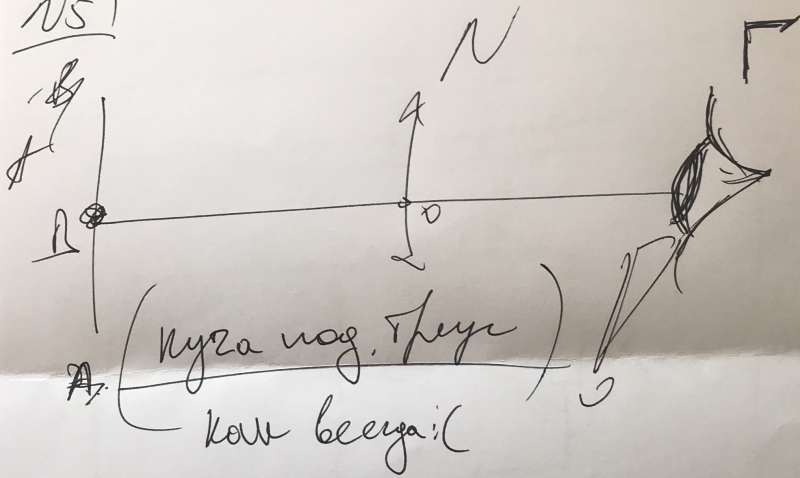 N5
N
B
O
A
(куча под. треуг
как всегда :(